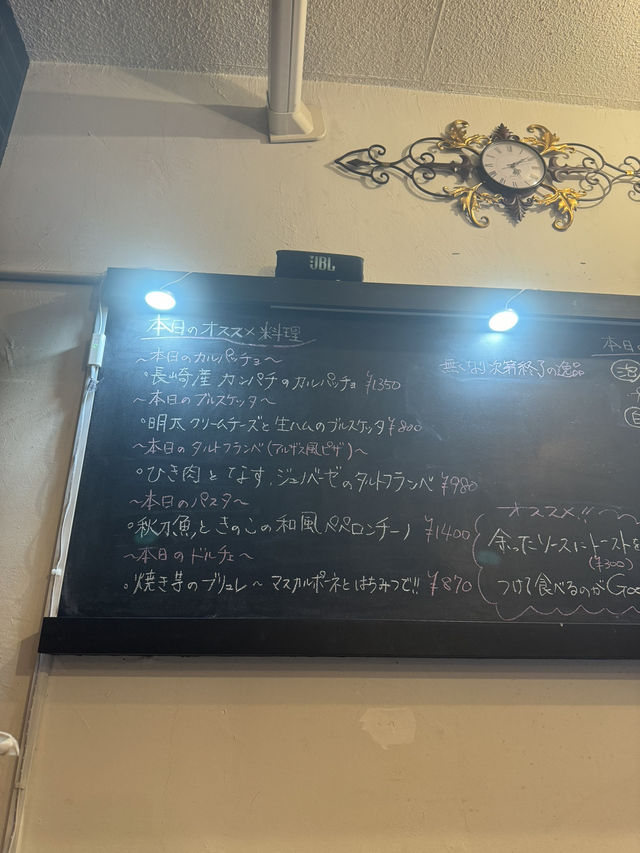 JBL
本日のオススメ料理
～本日のカルパッチョ～
・長崎産 カンパチのカルパッチョ ¥1350
～本日のブルスケッタ～
・明太クリームチーズと生ハムのブルスケッタ ¥800
～本日のタルトフランベ(アルザス風ピザ)～
・ひき肉となす、ジェノベーゼのタルトフランベ ¥980
～本日のパスタ～
・秋刀魚ときのこの和風ペペロンチーノ ¥1400
～本日のドルチェ～
・焼き芋のブリュレ～マスカルポーネとはちみつで!! ¥870
無くなり次第終了の逸品
本日の
オススメ!!
余ったソースにトーストを
(¥300)
つけて食べるのがGoo